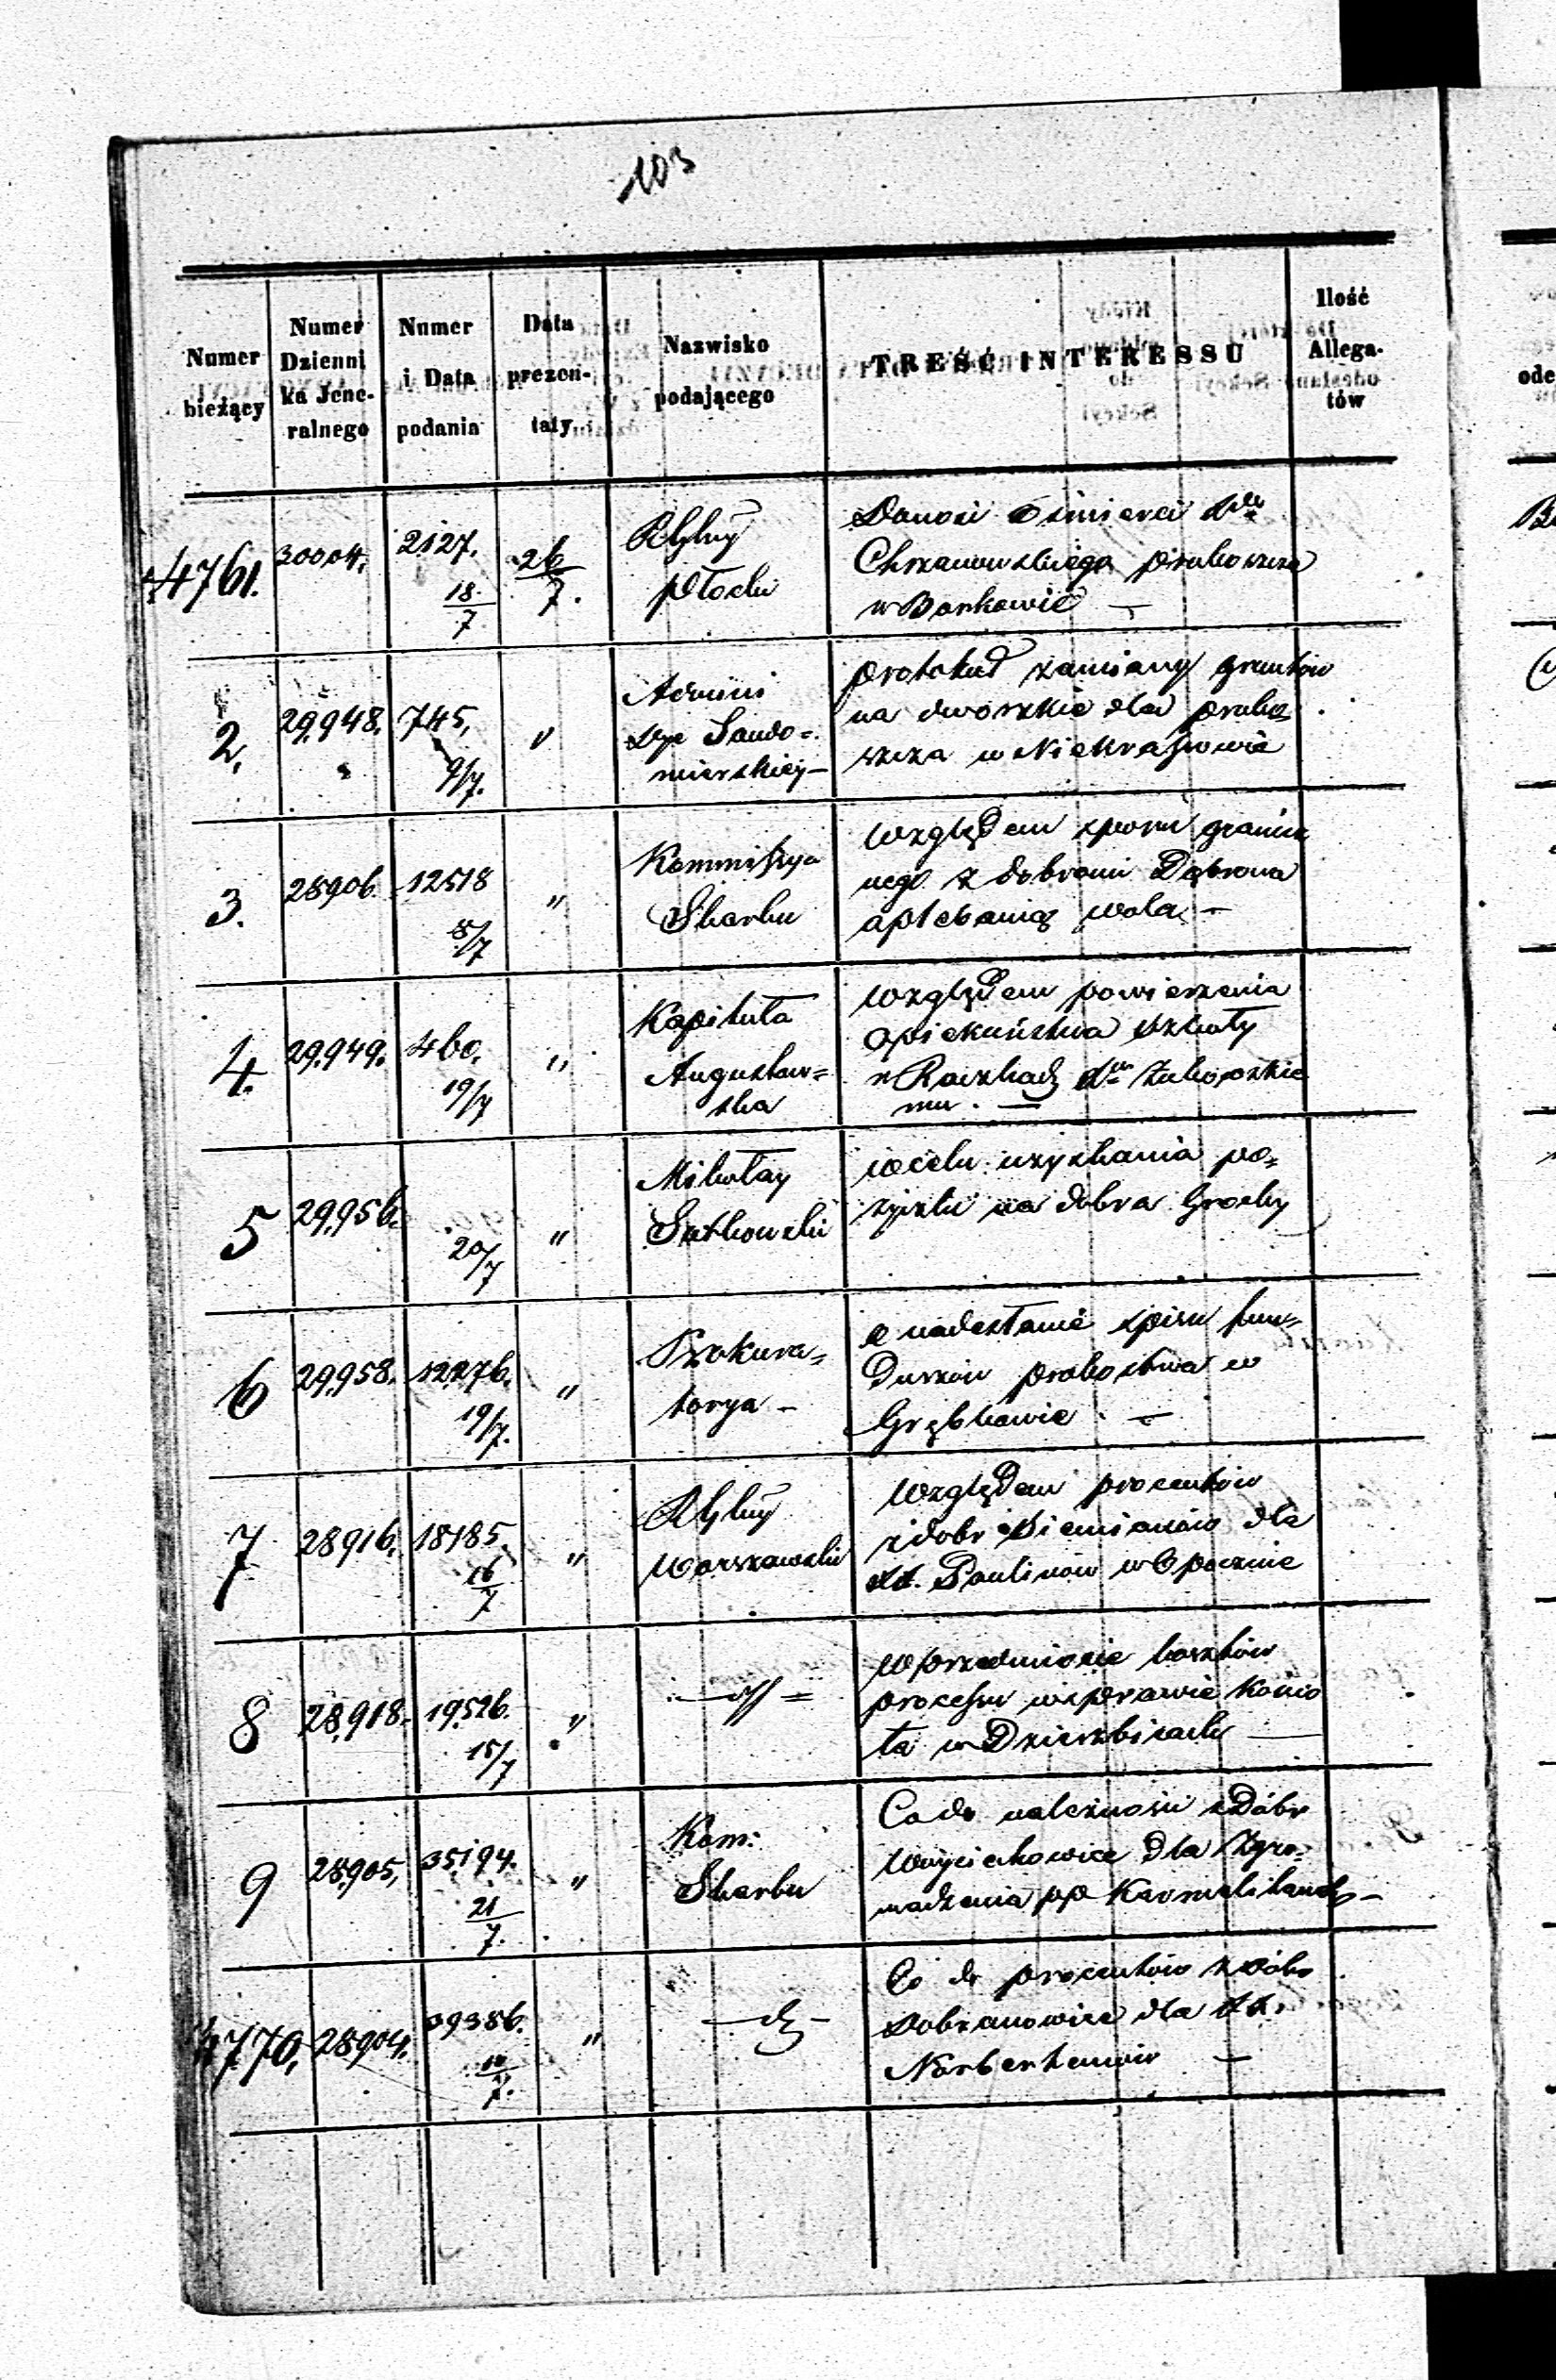 103
Numer bieżący
Numer Dzienni ka Jene- ralnego
Numer i Data podania
Data prezen- taty
Nazwisko podającego
TREŚĆ INTERESSU
Ilość Allega- tów
4761. 30004. 2127. 18/7 26/7.
Płocki
Donosi o śmierci
Chrzanowskiego proboszcza
w Borkowie —
2, 29,948. 745, 9/7. "
Admini
Sando=
mierskiey —
protokuł zamiany gruntów
na dworskie dla probo
szcza w Niekrasowie
3. 28906. 12518 8/7 "
Kommissya
Skarbu
Względem sporu granicz
nego z dobrami Dąbrowa
a plebanią wola —
4. 29,949. 460. 19/7 "
Kapituła
Augustow=
ska
Względem powierzenia
opiekuństwa szkoły
w Raczkach
mu. —
5 29,956. 20/7 "
Mikołay
w celu uzyskania po=
życzki na dobra
6 29,958. 12276. 19/7. "
Prokura=
torya —
o nadesłanie spisu fun=
duszów probostwa w
Grębkowie. —
7 28916. 18185. 16/7 "
Warszawski
Względem procentów
z dobr Siemianów dla
XX. Paulinów w Opocznie
8 28,918. 19,526. 15/7 "
W przedmiocie kosztów
processu w sprawie Kościo
ła w Dzierzbicach —
9 28,905, 35194. 21/7. "
Kom:
Skarbu
Co do należności z Dóbr
Woyciechowice dla Zgro=
madzenia pp Karmelitanek —
4770, 28904. 39386. 10/7. "
Co do procentów z Dóbr
Dobranowice dla XX.
Norbertanów —